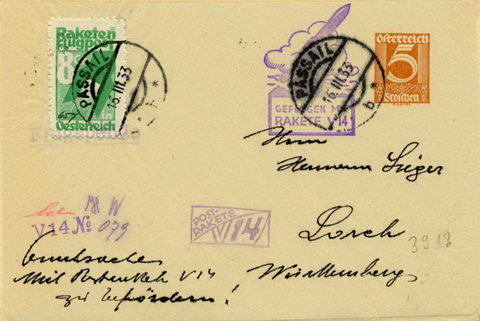 Raketen
Flugpost
8
Oesterreich
PASSAIL
16.III.33
* b *
PASSAIL
16.III.33
b *
Österreich
5
Groschen
GEFLOGEN MIT
RAKETE V14
Herrn
Hermann Sieger
Lorch
Württemberg
3918
V14 No 079
POST-
RAKETE
V14
Drucksache
Mit Postrakete V14
zu befördern!